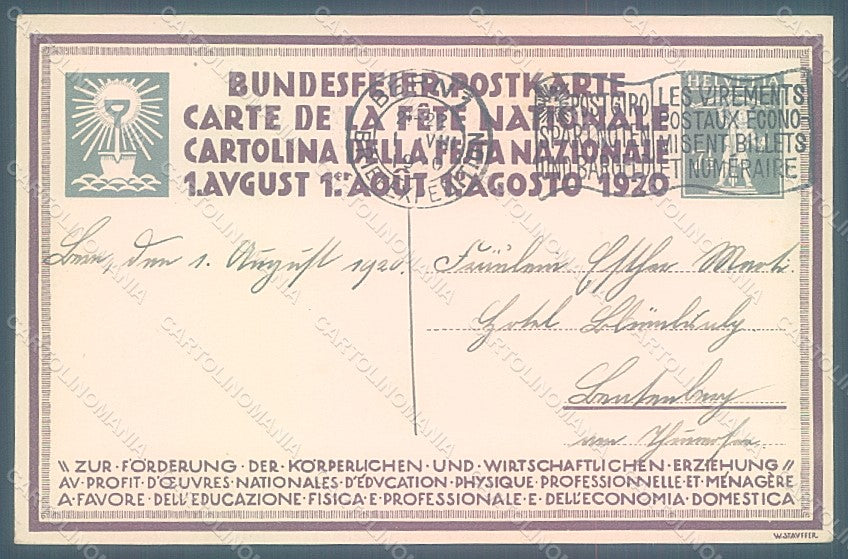 BUNDESFEIER-POSTKARTE
CARTE DE LA FÊTE NATIONALE
CARTOLINA DELLA FESTA NAZIONALE
1.AVGUST 1ER AOÛT 1.AGOSTO 1920
HELVETIA
BERN 1
BRIEFEXPEDITION
POSTGIRO
SPART NOTEN
UND BARGELD
LES VIREMENTS
POSTAUX ÉCONO-
MISENT BILLETS
ET NUMÉRAIRE
Bern, den 1. August 1920.
Fräulein Esther Marti
Hotel
Leutenberg
am Thunersee
"ZUR·FÖRDERUNG·DER·KÖRPERLICHEN·UND·WIRTSCHAFTLICHEN·ERZIEHUNG"
AV·PROFIT·D'ŒUVRES·NATIONALES·D'ÉDVCATION·PHYSIQUE·PROFESSIONNELLE·ET·MÉNAGÈRE
A·FAVORE·DELL'EDUCAZIONE·FISICA·E·PROFESSIONALE·E·DELL'ECONOMIA·DOMESTICA
W.STAVFFER.
CARTOLINOMANIA